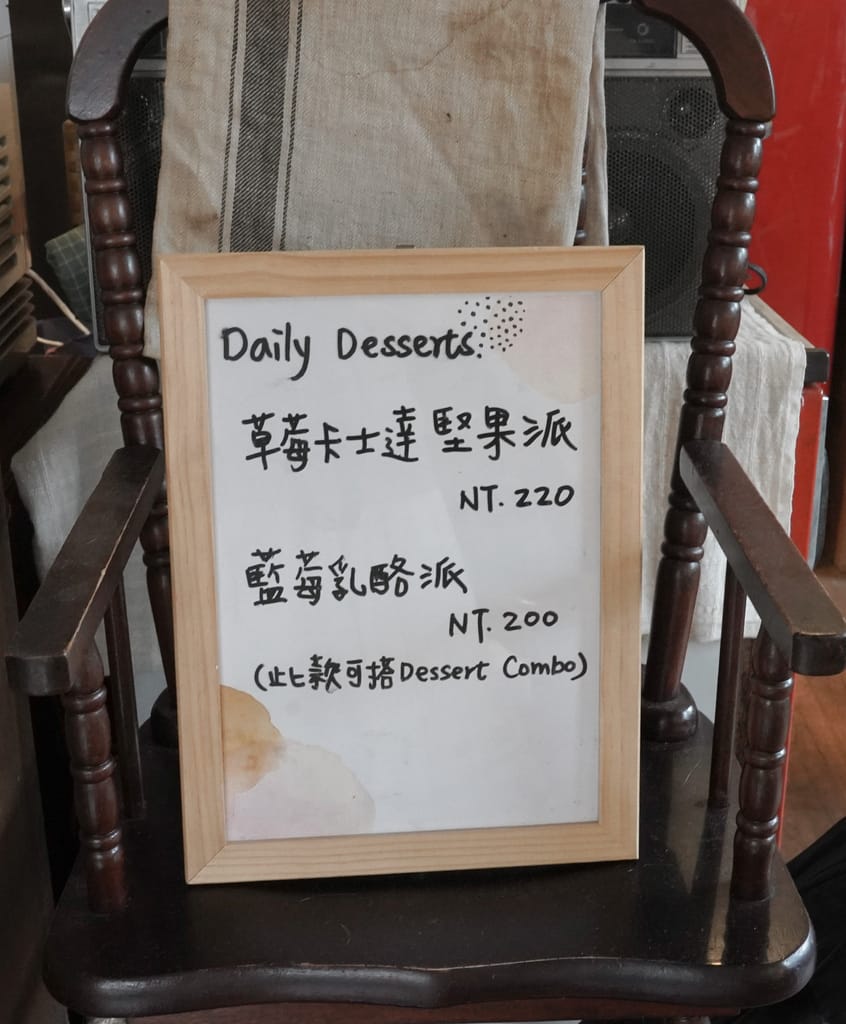 Daily Desserts:
草莓卡士達堅果派
NT. 220
藍莓乳酪派
NT. 200
(此款可搭Dessert Combo)